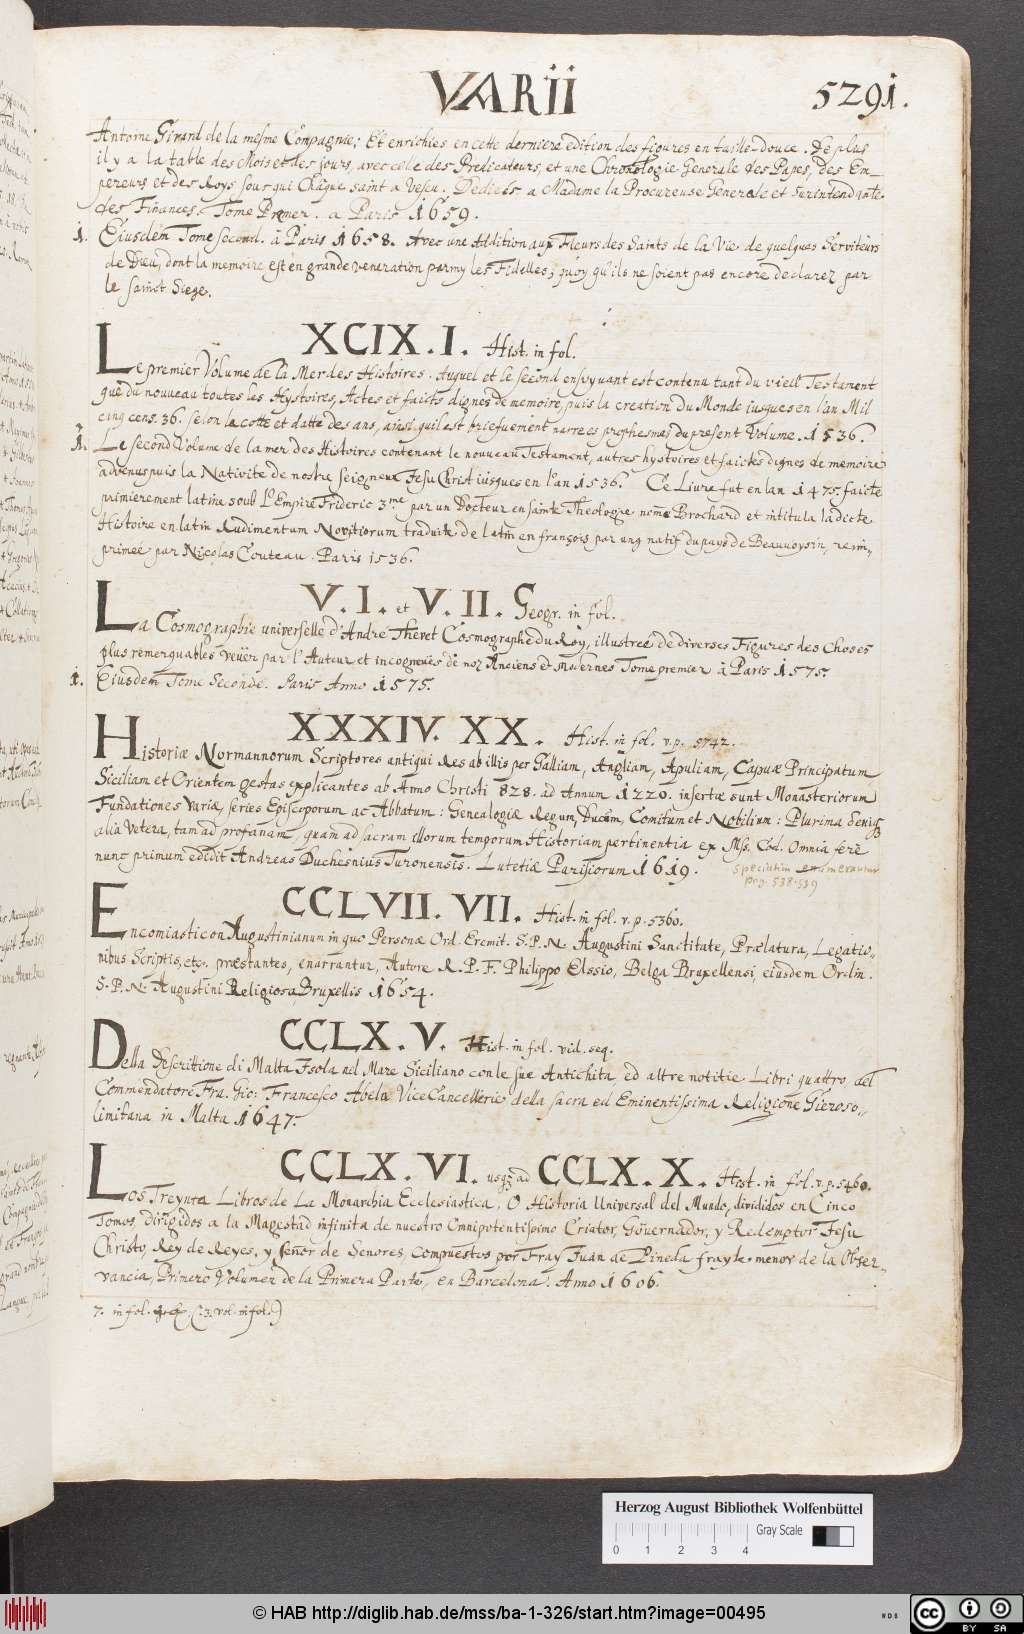 VARii
5291.
Antoine Girard de la mesme Compagnie; Et enrichies en cette derniere edition des figures en taille-douce. De plus
il y a la table des Mois et des jours, avec celle des Predicateurs, et une Chronologie Generale des Papes, des Em-
pereurs et des Roys sous qui chaque saint a vescu. Dediees a Madame la Procureuse Generale et surintendante
des Finances. Tome Premier. a Paris 1659.
1. Eiusdem Tome second. à Paris 1658. Avec une Addition aux Fleurs des Saints de la Vie de quelques Serviteurs
de Dieu, dont la memoire est en grande veneration parmy les Fidelles; quoy qu'ils ne soient pas encore declarez par
le sainct Siege.
XCIX. I. Hist. in fol.
Le premier Volume de la Mer des Histoires. Auquel et le second ensuyuant est contenu tant du vieil Testament
que du nouveau toutes les Hystoires, Actes et faicts dignes de memoire, puis la creation du Monde iusques en l'an Mil
cinq cens. 36. selon la cotte et datte des ans, ainsi quil est briefuement narre es prophesmes du present Volume. 1536.
1. Le second Volume de la mer des Histoires contenant le nouveau Testament, autres hystoires et faictes dignes de memoire
advenus puis la Nativite de nostre seigneur Jesu Christ iusques en l'an 1536. Ce Liure fut en lan 1475. faicte
primierement latine soub l'Empire Frideric 3.me par un Docteur en sainte Theologie nomé Brochard et intitula ladicte
Histoire en latin Rudimentum Novitiorum traduite de latin en françois par ung natif du pays de Beauvoysin, reim-
primeé par Nicolas Couteau. Paris 1536.
V. I. et V. II. Geogr. in fol.
La Cosmographie universelle d'André Thevet Cosmographe du Roy, illustree de diverses Figures des Choses
plus remerquables veües par l'Auteur et incogneües de noz Anciens et modernes Tome premier à Paris 1575.
1. Eiusdem Tome Seconde. Paris Anno 1575.
XXXIV. XX. Hist. in fol. v.p. 5742.
Historiæ Normannorum Scriptores antiqui Res ab illis per Galliam, Angliam, Apuliam, Capuæ Principatum
Siciliam et Orientem gestas explicantes ab Anno Christi 828. ad Annum 1220. insertæ sunt Monasteriorum
Fundationes Variæ, series Episcoporum ac Abbatum: Genealogiæ Regum, Ducum, Comitum et Nobilium: Plurima deniq
alia Vetera, tam ad profanam, quam ad sacram illorum temporum Historiam pertinentia ex Mss. Cod. Omnia fere
nunc primum edidit Andreas Duchesnius Turonensis. Lutetiæ Parisiorum 1619.
speciatim enumerantur
pag. 538. 539
CCLVII. VII. Hist. in fol. v. p. 5360.
Encomiasticon Augustinianum in quo Personæ Ord. Eremit. S. P. N. Augustini Sanctitate, Prælatura, Legatio-
nibus Scriptis, etc. præstantes, enarrantur, Autore R. P. F. Philippo Elssio, Belga Bruxellensi, eiusdem Ordin.
S. P. N. Augustini Religioso, Bruxellis 1654.
CCLX. V. Hist. in fol. vid. seq.
Della Descrittione di Malta Isola nel Mare Siciliano con le sue Antichita, ed altre notitie Libri quattro del
Commendatore Fra. Gio: Francesco Abela ViceCancellerie della sacra ed Eminentissima Religione Gieroso-
limitana in Malta 1647.
CCLX. VI. usq ad CCLX. X. Hist. in fol. v. p. 5460.
Los Treynta Libros de La Monarchia Ecclesiastica, O Historia Universal del Mundo, divididos en Cinco
Tomos, dirigidos a la Magestad infinita de nuestro Omnipotentissimo Criator, Governador, y Redemptor Jesu
Christo, Rey de Reyes, y señor de Senores, compuestos por Fray Juan de Pineda frayle menor de la Obser-
vancia, Primero Volumen de la Primera Parte, en Barcelona. Anno 1606.
7. in fol. (: 3. vol. in fol. :)
Herzog August Bibliothek Wolfenbüttel
Gray Scale
0 1 2 3 4
© HAB http://diglib.hab.de/mss/ba-1-326/start.htm?image=00495
WDB
cc BY SA